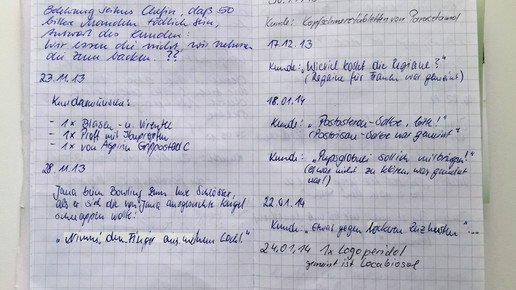 Belehrung seitens Chefin, daß 50
bittere Mandeln tödlich sein,
Antwort des Kunden:
Wir essen die nicht, wir nehmen
die zum backen. ??
23.11.13
Kundenwünsche:
- 1x Blasen- u.
- 1x
- 1x von Aspirin Grippostad C
28.11.13
Jana beim Bowling zum
als er sich die von Jana ausgesuchte Kugel
schnappen wollte:
"Nimm den Finger aus meinem Loch!"
Kunde: Kopfschmerztabletten von Paracetamol
17.12.13
Kunde: "Wieviel kostet die Legraine?"
(Regaine für Frauen war gemeint)
18.01.14
Kunde: "Postasteron-Salbe, bitte!"
(Posterisan-Salbe war gemeint)
Kunde: " soll ich mitbringen!"
(etwas nicht zu war gemeint
war!)
22.01.14
Kunde: "Etwas gegen lockeren Reizhusten"...
24.01.14 1x Logoperidol
gemeint ist Locabiosol